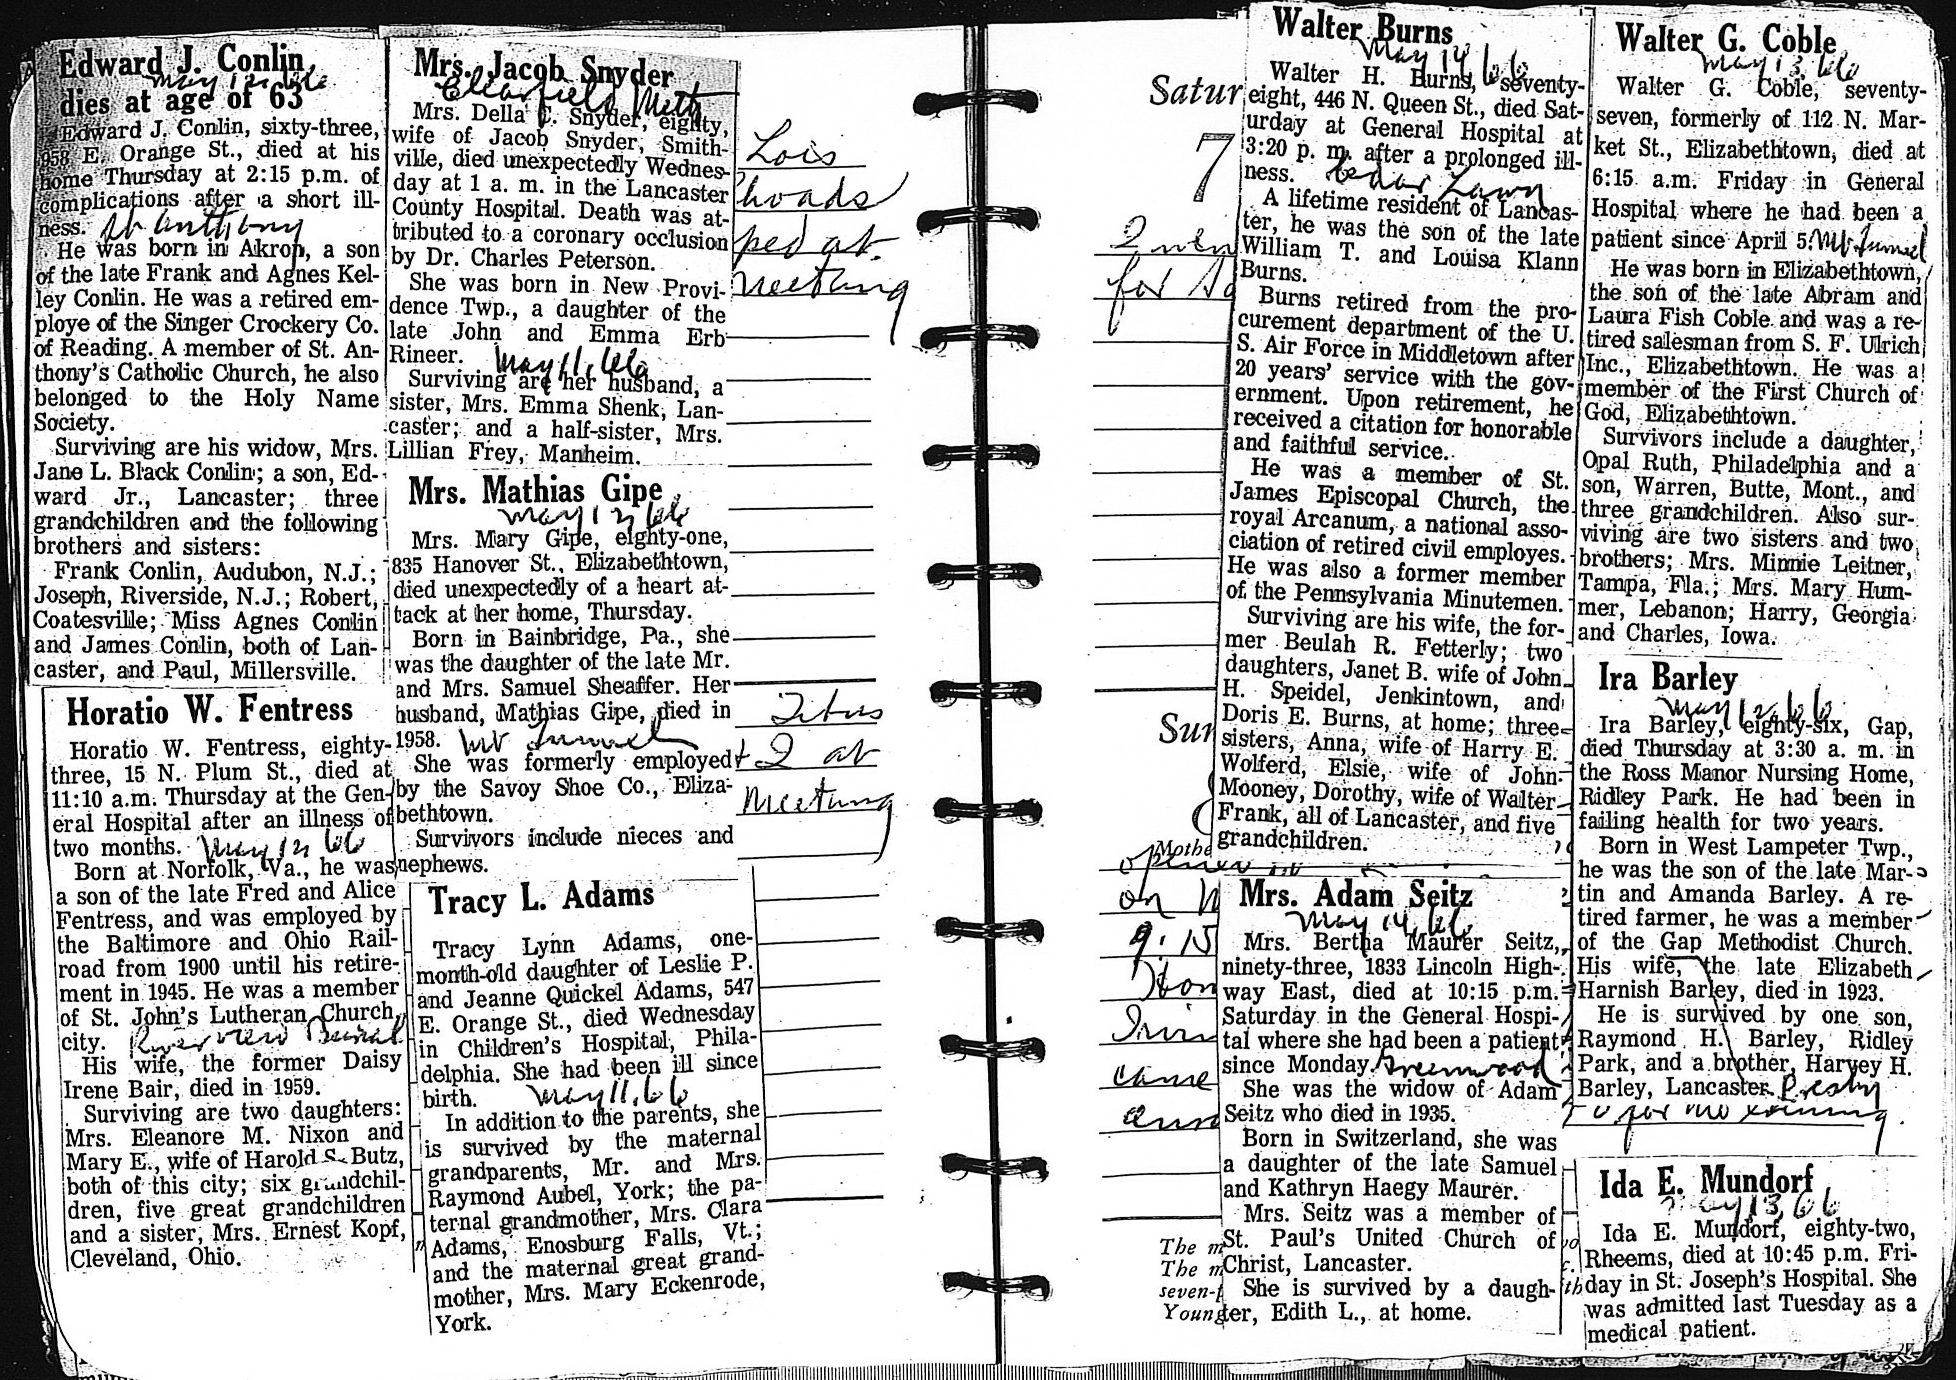 Edward J. Conlin
May 12, 66
dies at age of 63
Edward J. Conlin, sixty-three,
958 E. Orange St., died at his
home Thursday at 2:15 p.m. of
complications after a short ill-
ness. St Anthony
He was born in Akron, a son
of the late Frank and Agnes Kel-
ley Conlin. He was a retired em-
ploye of the Singer Crockery Co.
of Reading. A member of St. An-
thony's Catholic Church, he also
belonged to the Holy Name
Society.
Surviving are his widow, Mrs.
Jane L. Black Conlin; a son, Ed-
ward Jr., Lancaster; three
grandchildren and the following
brothers and sisters:
Frank Conlin, Audubon, N.J.;
Joseph, Riverside, N.J.; Robert,
Coatesville; Miss Agnes Conlin
and James Conlin, both of Lan-
caster, and Paul, Millersville.
Horatio W. Fentress
Horatio W. Fentress, eighty-
three, 15 N. Plum St., died at
11:10 a.m. Thursday at the Gen-
eral Hospital after an illness of
two months. May 12 66
Born at Norfolk, Va., he was
a son of the late Fred and Alice
Fentress, and was employed by
the Baltimore and Ohio Rail-
road from 1900 until his retire-
ment in 1945. He was a member
of St. John's Lutheran Church,
city. Riverview Burial
His wife, the former Daisy
Irene Bair, died in 1959.
Surviving are two daughters:
Mrs. Eleanore M. Nixon and
Mary E., wife of Harold S. Butz,
both of this city; six grandchil-
dren, five great grandchildren
and a sister, Mrs. Ernest Kopf,
Cleveland, Ohio.
Mrs. Jacob Snyder
Clearfield Meth
Mrs. Della C. Snyder, eighty,
wife of Jacob Snyder, Smith-
ville, died unexpectedly Wednes-
day at 1 a. m. in the Lancaster
County Hospital. Death was at-
tributed to a coronary occlusion
by Dr. Charles Peterson.
She was born in New Provi-
dence Twp., a daughter of the
late John and Emma Erb
Rineer. May 11, 66
Surviving are her husband, a
sister, Mrs. Emma Shenk, Lan-
caster; and a half-sister, Mrs.
Lillian Frey, Manheim.
Mrs. Mathias Gipe
May 12, 66
Mrs. Mary Gipe, eighty-one,
835 Hanover St., Elizabethtown,
died unexpectedly of a heart at-
tack at her home, Thursday.
Born in Bainbridge, Pa., she
was the daughter of the late Mr.
and Mrs. Samuel Sheaffer. Her
husband, Mathias Gipe, died in
1958. Mt Tunnel
She was formerly employed
by the Savoy Shoe Co., Eliza-
bethtown.
Survivors include nieces and
nephews.
Tracy L. Adams
Tracy Lynn Adams, one-
month-old daughter of Leslie P.
and Jeanne Quickel Adams, 547
E. Orange St., died Wednesday
in Children's Hospital, Phila-
delphia. She had been ill since
birth. May 11, 66
In addition to the parents, she
is survived by the maternal
grandparents, Mr. and Mrs.
Raymond Aubel, York; the pa-
ternal grandmother, Mrs. Clara
Adams, Enosburg Falls, Vt.;
and the maternal great grand-
mother, Mrs. Mary Eckenrode,
York.
Lois
hoads
ped at
meeting
Titus
2 at
meeting
Satur
7
2
for
Sun
8
Mothe
on
9:15
came
The m
The m
seven-
Young
Walter Burns
May 14, 66
Walter H. Burns, seventy-
eight, 446 N. Queen St., died Sat-
urday at General Hospital at
3:20 p. m. after a prolonged ill-
ness. Cedar Lawn
A lifetime resident of Lancas-
ter, he was the son of the late
William T. and Louisa Klann
Burns.
Burns retired from the pro-
curement department of the U.
S. Air Force in Middletown after
20 years' service with the gov-
ernment. Upon retirement, he
received a citation for honorable
and faithful service.
He was a member of St.
James Episcopal Church, the
royal Arcanum, a national asso-
ciation of retired civil employes.
He was also a former member
of the Pennsylvania Minutemen.
Surviving are his wife, the for-
mer Beulah R. Fetterly; two
daughters, Janet B. wife of John
H. Speidel, Jenkintown, and
Doris E. Burns, at home; three
sisters, Anna, wife of Harry E.
Wolferd, Elsie, wife of John
Mooney, Dorothy, wife of Walter
Frank, all of Lancaster, and five
grandchildren.
Mrs. Adam Seitz
May 14, 66
Mrs. Bertha Maurer Seitz,
ninety-three, 1833 Lincoln High-
way East, died at 10:15 p.m.
Saturday in the General Hospi-
tal where she had been a patient
since Monday. Greenwood
She was the widow of Adam
Seitz who died in 1935.
Born in Switzerland, she was
a daughter of the late Samuel
and Kathryn Haegy Maurer.
Mrs. Seitz was a member of
St. Paul's United Church of
Christ, Lancaster.
She is survived by a daugh-
ter, Edith L., at home.
Walter G. Coble
May 13, 66
Walter G. Coble, seventy-
seven, formerly of 112 N. Mar-
ket St., Elizabethtown, died at
6:15 a.m. Friday in General
Hospital where he had been a
patient since April 5. Mt Tunnel
He was born in Elizabethtown,
the son of the late Abram and
Laura Fish Coble and was a re-
tired salesman from S. F. Ulrich
Inc., Elizabethtown. He was a
member of the First Church of
God, Elizabethtown.
Survivors include a daughter,
Opal Ruth, Philadelphia and a
son, Warren, Butte, Mont., and
three grandchildren. Also sur-
viving are two sisters and two
brothers; Mrs. Minnie Leitner,
Tampa, Fla.; Mrs. Mary Hum-
mer, Lebanon; Harry, Georgia
and Charles, Iowa.
Ira Barley
May 12, 66
Ira Barley, eighty-six, Gap,
died Thursday at 3:30 a. m. in
the Ross Manor Nursing Home,
Ridley Park. He had been in
failing health for two years.
Born in West Lampeter Twp.,
he was the son of the late Mar-
tin and Amanda Barley. A re-
tired farmer, he was a member
of the Gap Methodist Church.
His wife, the late Elizabeth
Harnish Barley, died in 1923.
He is survived by one son,
Raymond H. Barley, Ridley
Park, and a brother, Harvey H.
Barley, Lancaster. Presby
Ida E. Mundorf
May 13, 66
Ida E. Mundorf, eighty-two,
Rheems, died at 10:45 p.m. Fri-
day in St. Joseph's Hospital. She
was admitted last Tuesday as a
medical patient.